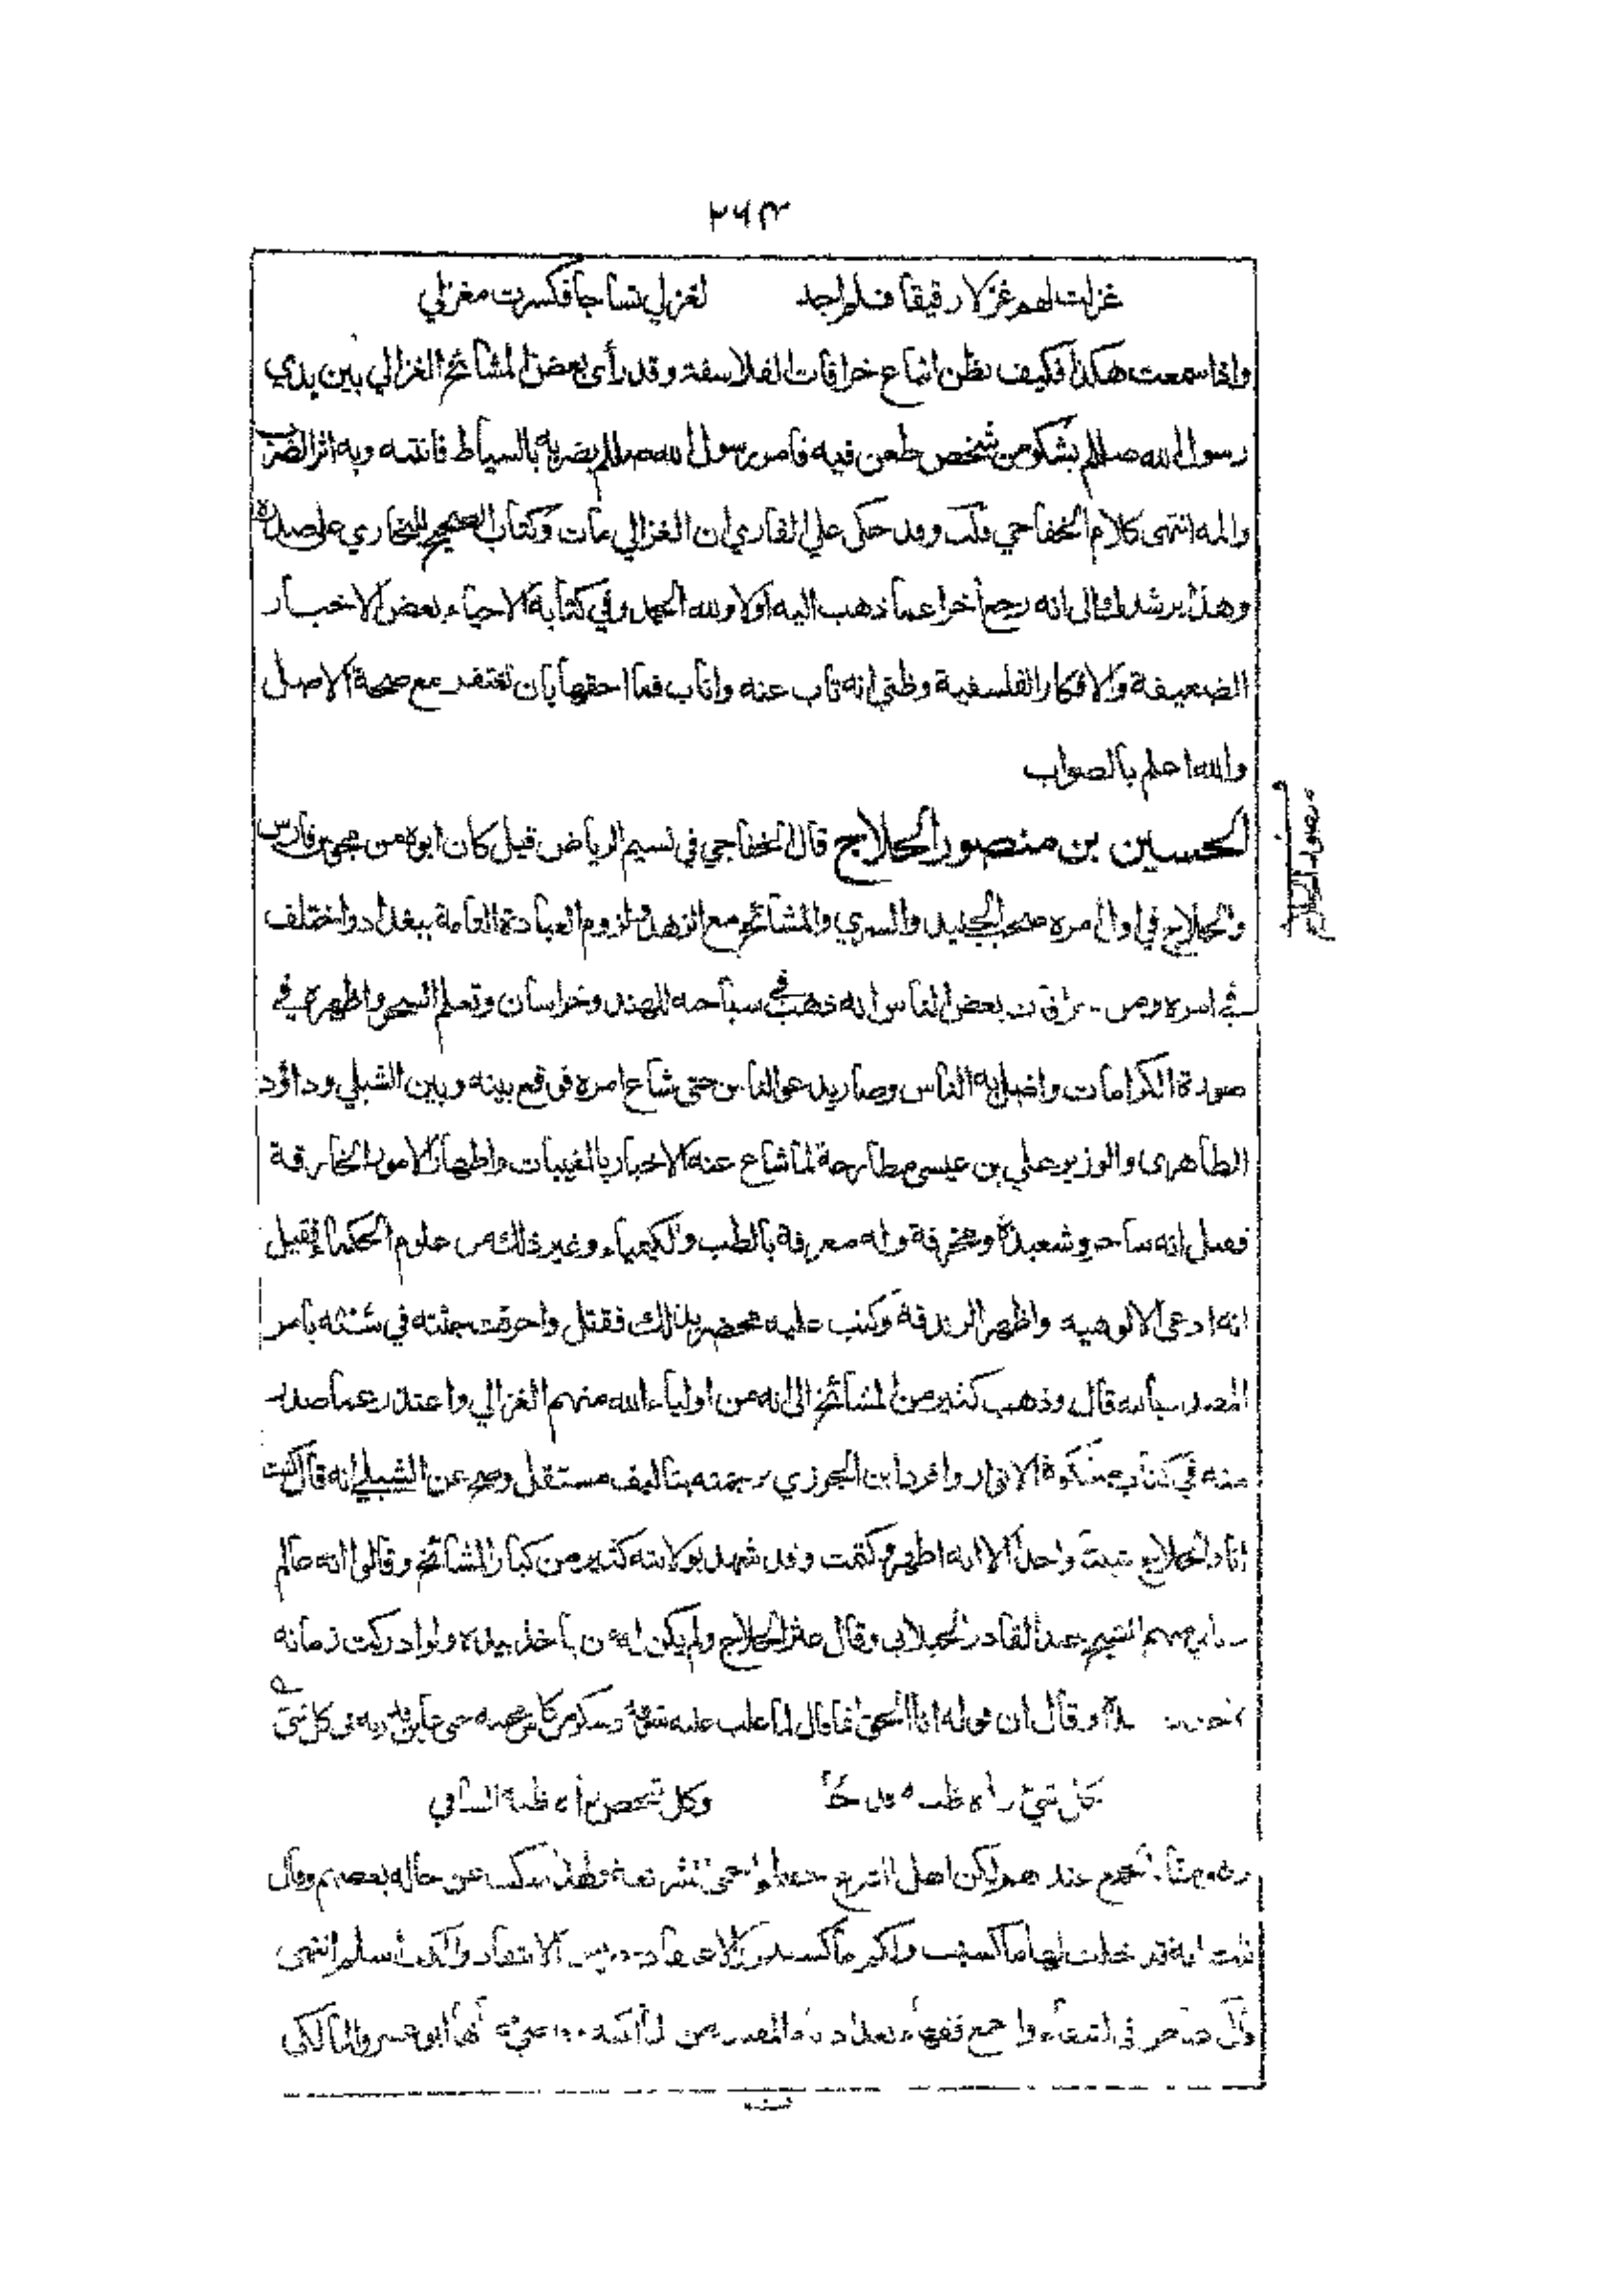 ٢٦٣
غزلت لهم غزلا رقيقا فلم اجد لغزلي نساجا فكسرت مغزلي
واذا سمعت هكذا فكيف يظن اتباع خرافات الفلاسفه وقد رأى بعض المشائخ الغزالي بين يدي
رسول الله صللم يشكو من شخص طعن فيه فامر رسول الله صللم بضربه بالسياط فانتبه وبه اثر الضرب
والمه انتهى كلام الخفاجي قلت وقد حكى علي القاري ان الغزالي مات وكتاب الصحيح للبخاري على صدره
وهذا يرشدك الى انه رجع أخرا عما ذهب اليه اولا ولله الحمد وفي كتابه الاحياء بعض الاخبار
الضعيفة والافكار الفلسفية وظني انه تاب عنه واناب فما احقها بان تغتفر مع صحة الاصل
والله اعلم بالصواب
منصور الحلاج
الحسين بن منصور الحلاج قال الخفاجي في نسيم الرياض قيل كان ابوه من مجوس فارس
والحلاج في اول امره صحب الجنيد والسري والمشائخ مع الزهد ولزوم العبادة التامة ببغداد واختلف
في امره بعض الناس انه ذهب في سياحه للهند وخراسان وتعلم السحر واظهره في
صورة الكرامات واضل به الناس وصار يدعو الناس حتى شاع امره فوقع بينه وبين الشبلي وداؤد
الظاهرى والوزير علي بن عيسى مطارحة لما شاع عنه الاخبار بالغيبات واظهار الامور الخارقة
فقيل انه ساحر وشعبدة ومخرقة وله معرفة بالطب والكيمياء وغير ذلك من علوم الحكماء فقيل
انه ادعى الالوهيه واظهر الزندقة وكتب عليه محضر بذلك فقتل واحرقت جثته في سنة بامر
المقتدر بالله قال وذهب كثير من المشائخ الى انه من اولياء الله منهم الغزالي واعتذر عما صدر
منه في كتاب مشكوة الانوار وافرد ابن الجوزي ترجمته بتاليف مستقل وصح عن الشبلي انه قال كنت
انا والحلاج شيئا واحدا الا انه اظهر وكتمت وقد شهد بولايته كثير من كبار المشائخ وقالوا انه عالم
رباني منهم الشيخ عبد القادر الجيلاني وقال عثر الحلاج ولم يكن له من يأخذ بيده ولو ادركت زمانه
لاخذت بيده وقال ان قوله انا الحق انما قال لما غلب عليه شوقه وسكر من كأس محبته حتى في كل شئ
بكل شئ رأه ظنه قدحا وكل شخص رأه ظنه الساقي
عندهم لكن اهل الشرع حفظوا حمى الشريعة فلهذا سكت عن حاله بعضهم وقال
تلك امة قد خلت لها ما كسبت ولكم ما كسبتم والاعتقاد خير من الانتقاد والكف أسلم انتهى
قال في الشفاء واجمع فقهاء بغداد المقتدر من المالكية أبو عمرو المالكى